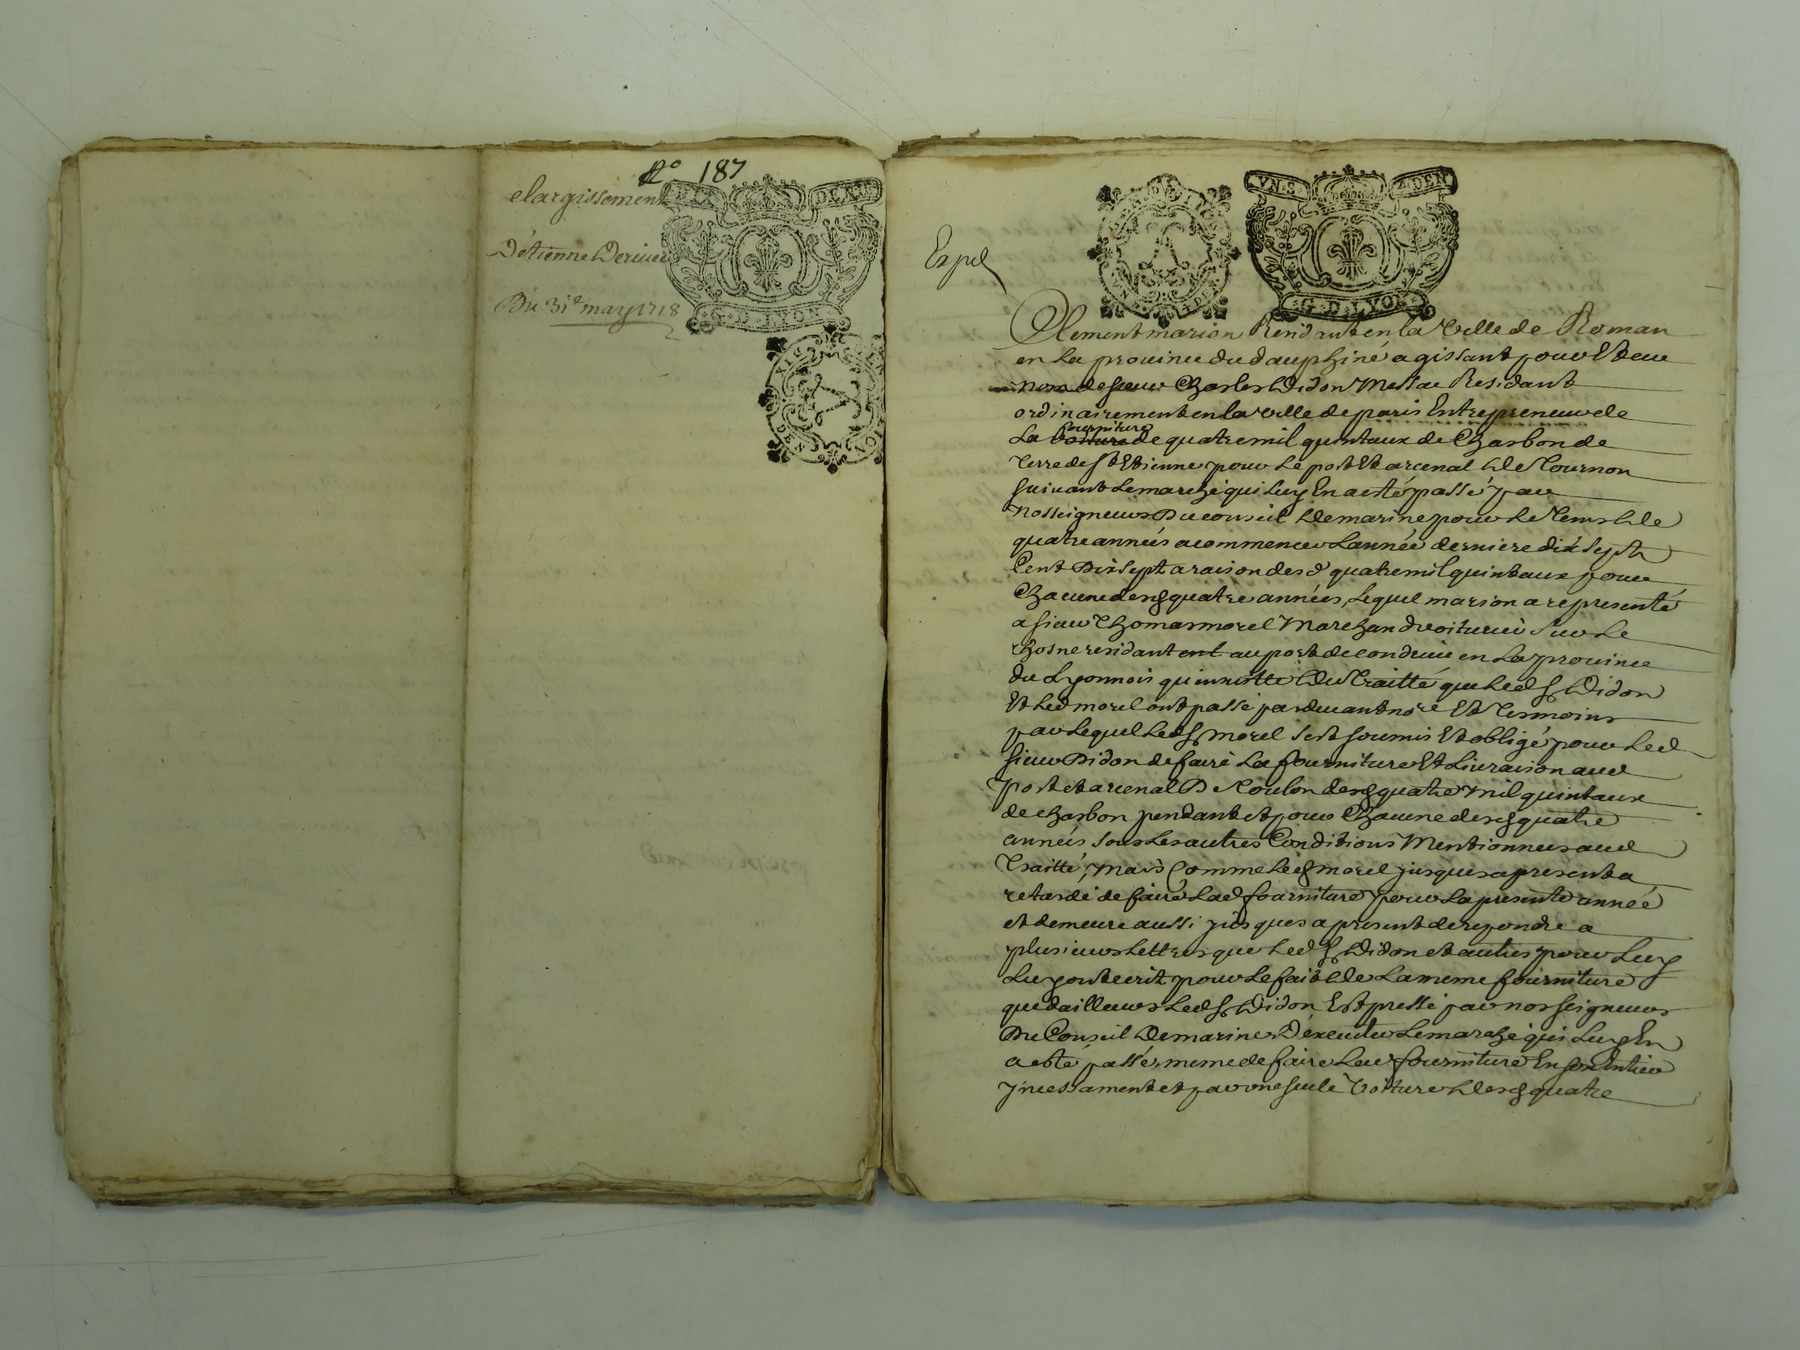 N° 187
elargissement
D'étienne Derivie
Du 31e may 1718
G D LYON
Expd
VN S 4 DEN
G D LYON
Clement marion Residant en la Ville de Roman
en La prouince du dauphiné agissant pour Et au
nom de sieur Charles Didon Messae Residant
ordinairement en la ville de paris Entrepreneur de
La fourniture de quatre mil quintaux de Charbon de
Terre de St Etienne pour Le port Et arcenal De Tournon
suiuant Le marché qui Luy En a esté passé par
Nosseigneurs Du conseil De marine pour Le Tems De
quatre années a commencer L'année derniere dix sept
Cent Dix sept a raison desd quatre mil quintaux pour
Chacune desd quatre années, Lequel marion a representé
a sieur Thomas morel Marchand voiturier Sur Le
rhosne residant au port de condrieu en La prouince
du Lyonnois qu'ensuitte Du Traitté que Led Sr Didon
Et Led morel ont passé pardeuant nore Et Tesmoins
par Lequel Led Sr morel s'est soumis Et obligé pour Led
sieur Didon de faire La fourniture Et Liuraison aud
port et arcenal De Toulon desd quatre mil quintaux
de charbon pendant et pour Chacune desd quatre
années sous Les autres Conditions Mentionnées aud
Traitté, Mais Comme Led Sr morel jusques a present a
retardé de faire Lad fourniture pour La presente année
et demeure aussi jusques a present de repondre a
plusieurs Lettres que Led Sr Didon et autres pour Luy
Luy ont ecrit pour Le fait De La meme fourniture
que d'ailleurs Led Sr Didon Est pressé par nosseigneurs
Du Conseil De marine D'executer Le marché qui Luy En
a esté passé, meme de faire Lad fourniture En son Entier
Jncessament et par vne seule Voiture Desd quatre